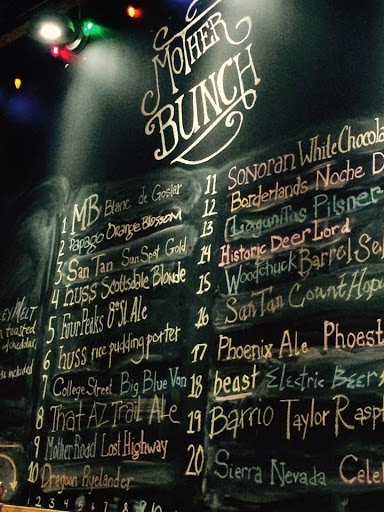 MOTHER
BUNCH
1 MB Blanc de Goslar
2 Papago Orange Blossom
3 San Tan Sun Spot Gold
4 huss Scottsdale Blonde
5 Four Peaks 8th St Ale
6 huss rice pudding porter
7 College Street Big Blue Van
8 That AZ Trail Ale
9 Mother Road Lost Highway
10 Dragoon Ryelander
11 SONORAN White Chocola
12 Borderlands Noche D
13 Lagunitas Pilsner
14 Historic Deer Lord
15 Woodchuck Barrel Sel
16 San Tan Count Hop
17 Phoenix Ale Phoest
18 beast Electric Beer
19 Barrio Taylor Rasp
20 Sierra Nevada Cele
EY MELT
toasted
cheddar,
included
1 2 3 4 5 6 7 8 9 10